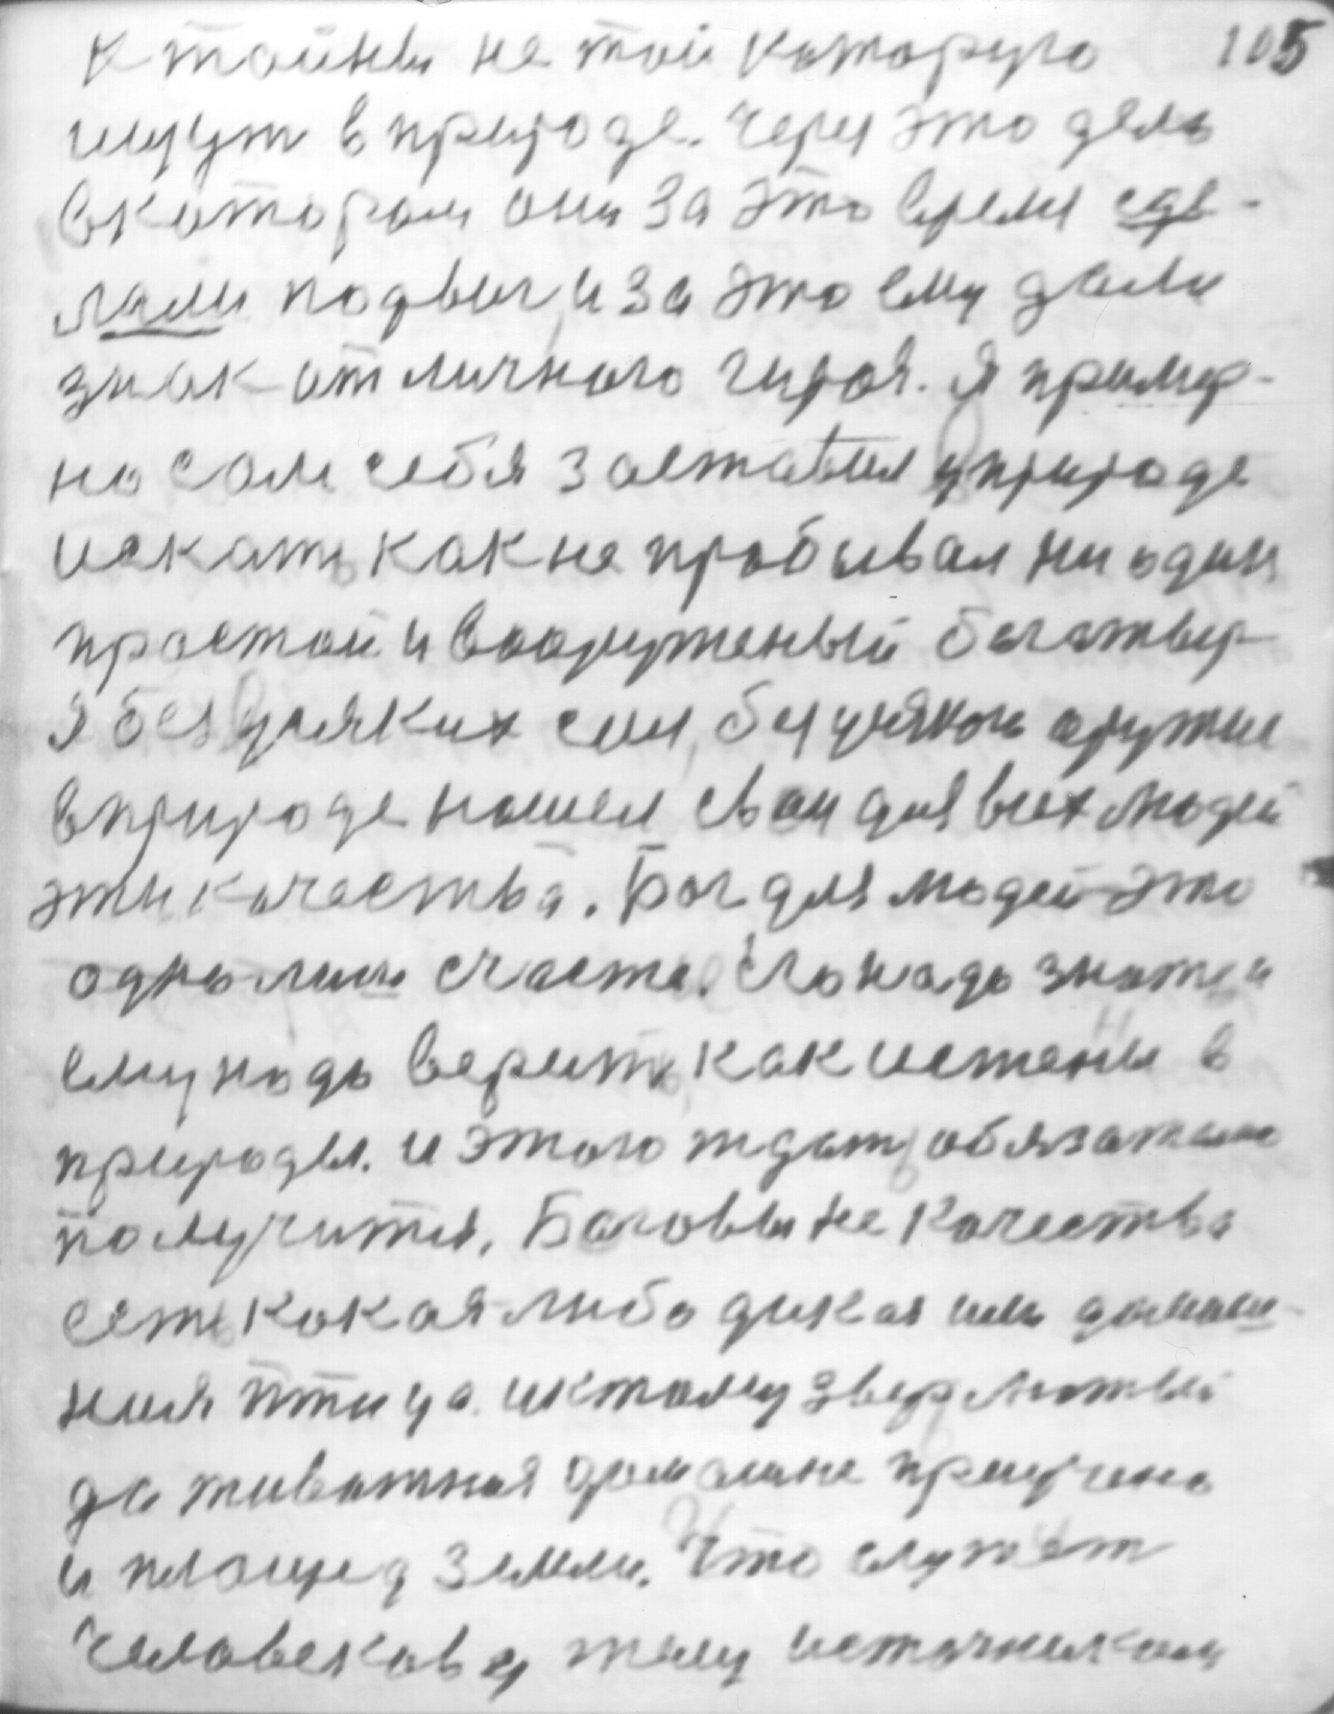 к тайны не той которую 105
ищут в природе. Через это дело
в котором они за это время сде-
лали подвыг, и за это ему дали
знак отличного гироя. Я пример-
но сам себя заставил у природе
искать как не пробывал ни один
простой и вооруженый богатыр
Я без усяких сил, без усякой оружие
в природе нашел свои для всех людей
эти качества. Бог для людей это
одно лиш счасте. Его надо знать и
ему надо верить, как истены в
природы. и этого ждать, обязательно
получится. Боговы не качества
есть какая либо дикая иль домаш-
няя птица. и к тому звер лютый
да животная домашне приучено
и площед земли. Что служет
человеков у телу источником